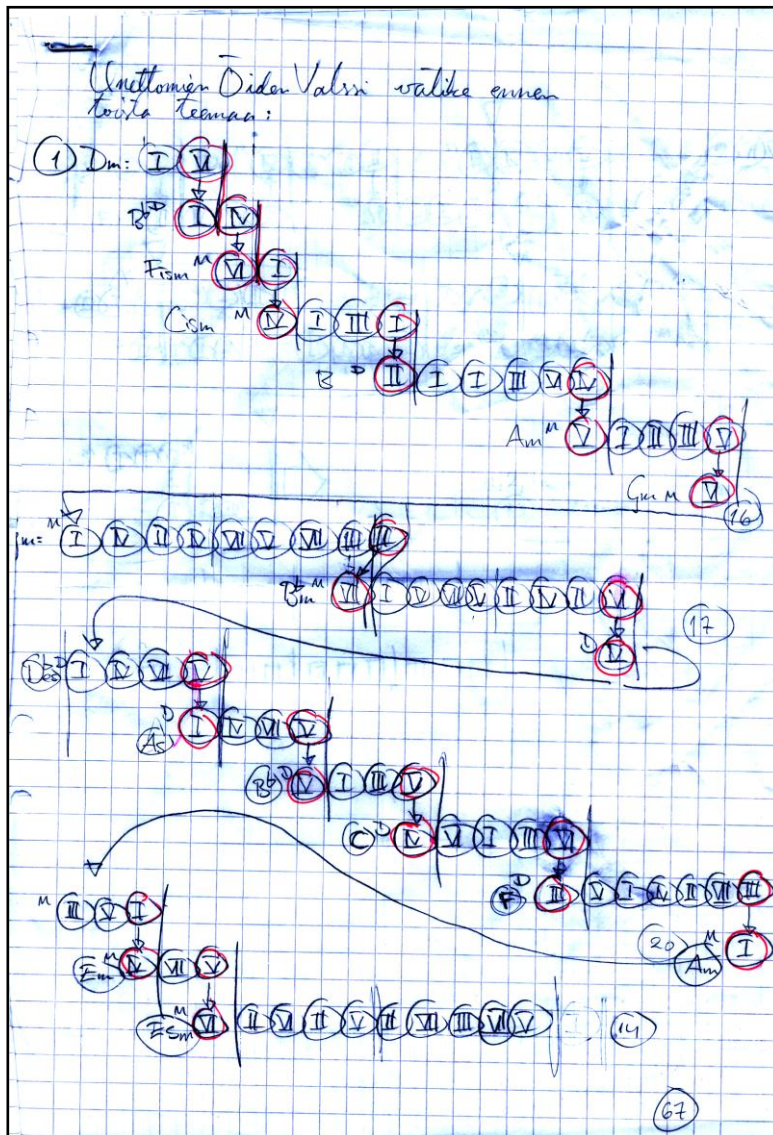 Unettomien Öiden Valssi välike ennen
toista teemaa:
① Dm: I VI
B♭ D I IV
Fism M VI I
Cism M IV I III I
B D II I I III VI IV
Am M V I II III V
Gm M V
16
M I IV II IV VII V VII III III
B♭m M VII I IV VII V II IV II VI
D IV
17
Des D I IV VII IV
As D I IV VII IV
B♭ D IV I III V
C D IV VI I III VI
F D III V I IV II VII III
20 Am M I
M III V I
Em M IV VII V
Esm M VI II VI II V II VII III VII V
14
67